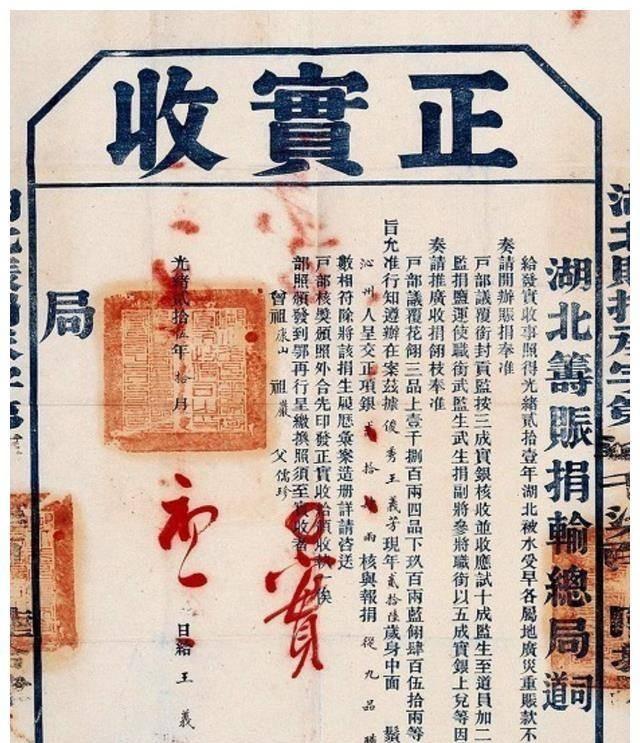 正實收
湖北籌賑捐輸總局司道
給發實收事照得光緒貳拾壹年湖北被水受旱各屬地廣災重賑款不
奏請開辦賑捐奉准
戶部議覆銜封貢監按三成實銀核收並收應試十成監生至道員加二
監捐鹽運使職銜武監生武生捐副將參將職銜以五成實銀上兌等因
奏請推廣收捐翎枝奉准
戶部議覆花翎三品上壹千捌百兩四品下玖百兩藍翎肆百伍拾兩等
旨允准行知遵辦在案茲據俊秀王義芳現年貳拾陸歲身中面 鬚
沁州 人呈交正項銀 拾 兩核與報捐從九品職
數相符除將該捐生履歷彙案造册詳請咨送
戶部核獎頒照外合先印發正實收給領收執一俟
部照頒發到鄂再行呈繳換照須至實收者
曾祖康山 祖嚴 父儒珍
光緒貳拾伍年拾月 日給王義
局